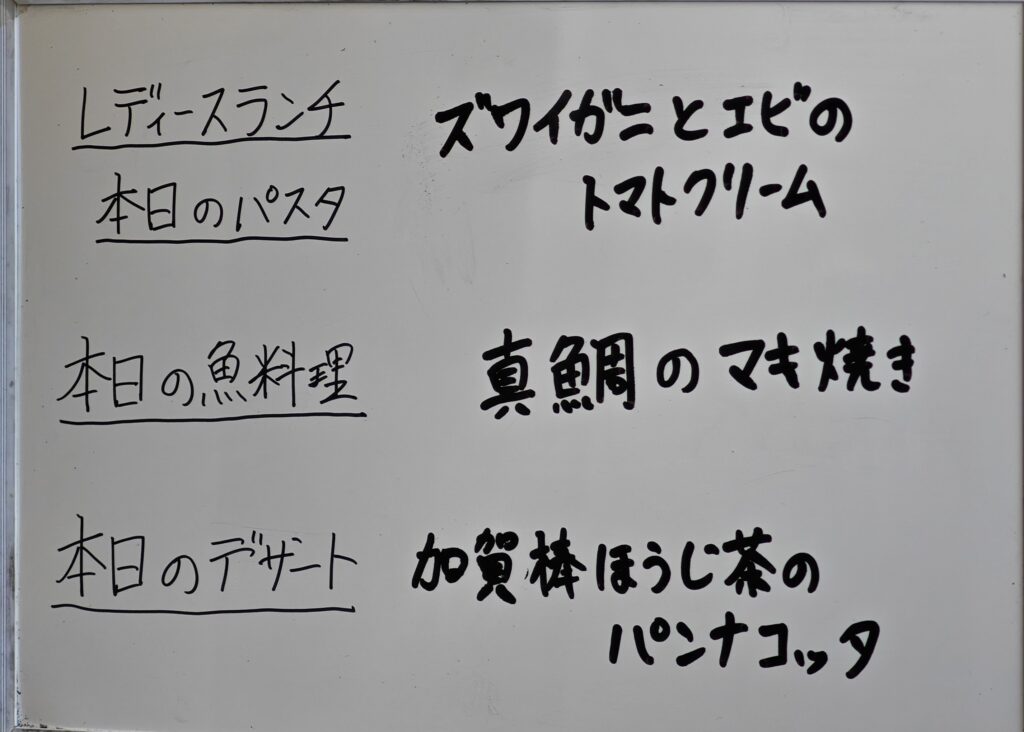 レディースランチ
ズワイガニとエビの
本日のパスタ
トマトクリーム
本日の魚料理
真鯛のマキ焼き
本日のデザート
加賀棒ほうじ茶の
パンナコッタ